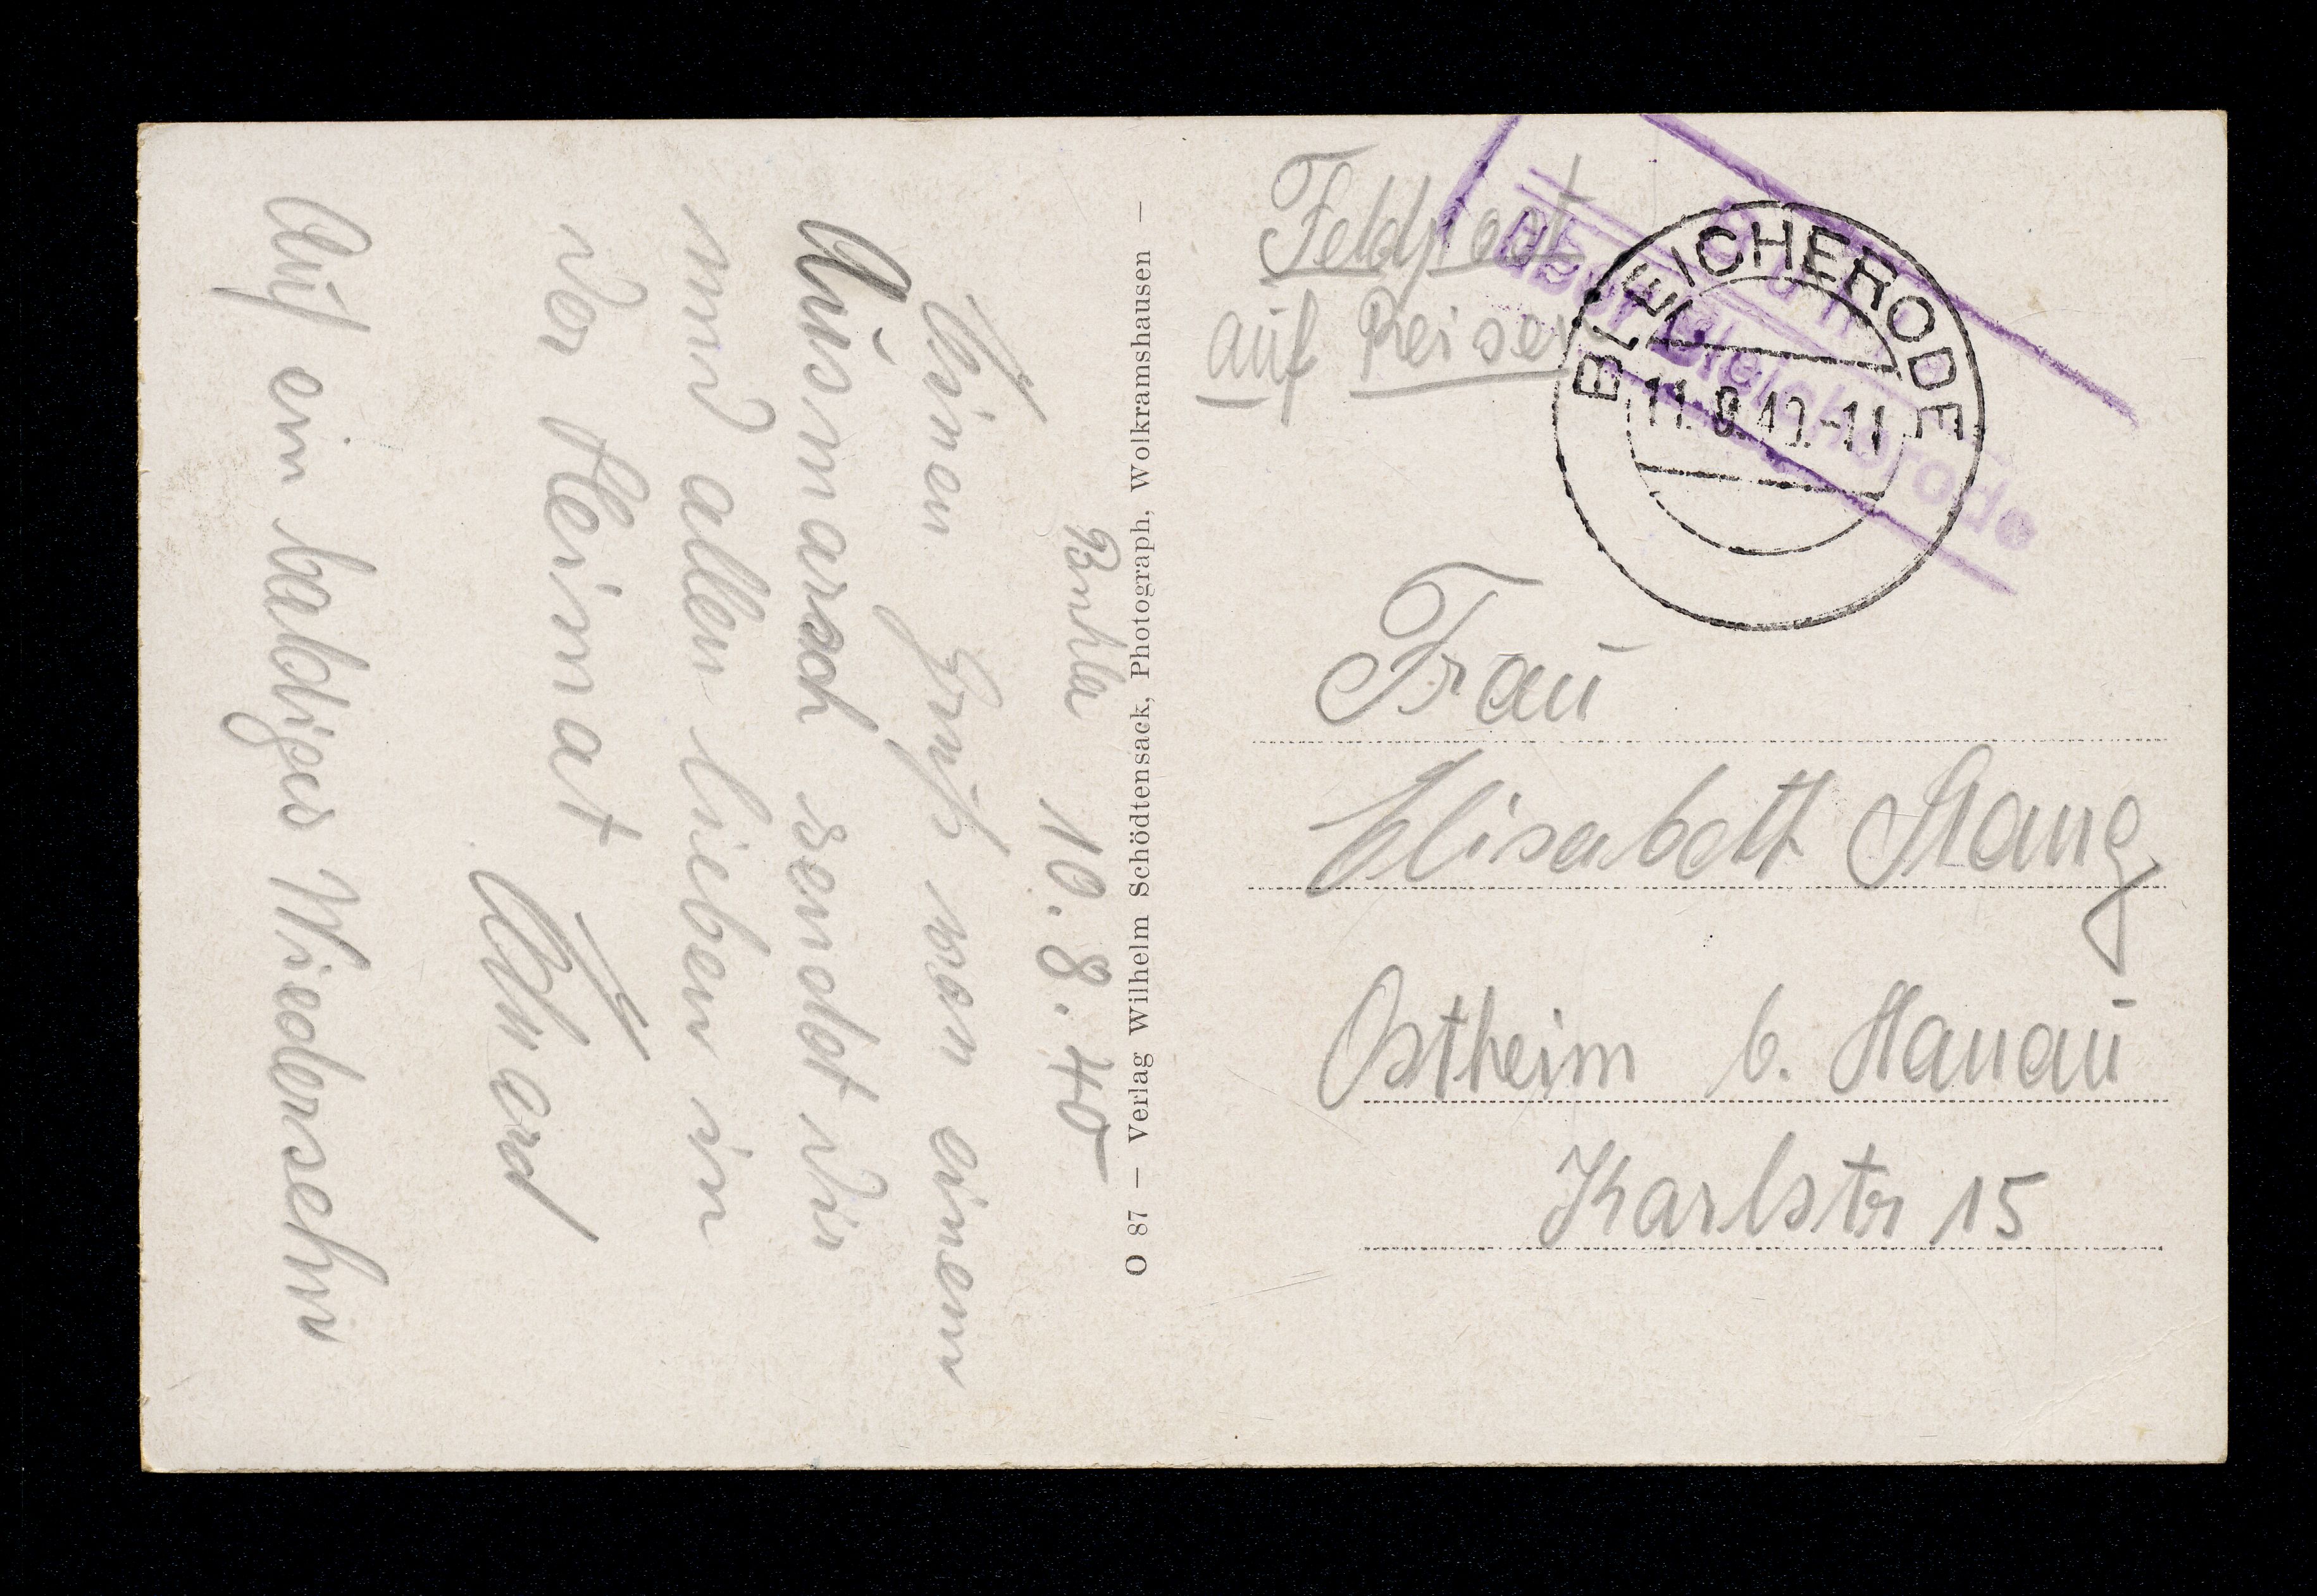 Buhla 10.8.40
Einen Gruß von einem
Ausmarsch sendet Dir
und allen lieben in
der Heimat
Auf ein baldiges Wiedersehn
O 87 — Verlag Wilhelm Schödtensack, Photograph, Wolkramshausen —
Feldpost
auf Reisen
Buhla
über Bleicherode
BLEICHERODE
11.8.40.-11
Frau
Elisabeth Stang
Ostheim b. Hanau
Karlstr 15